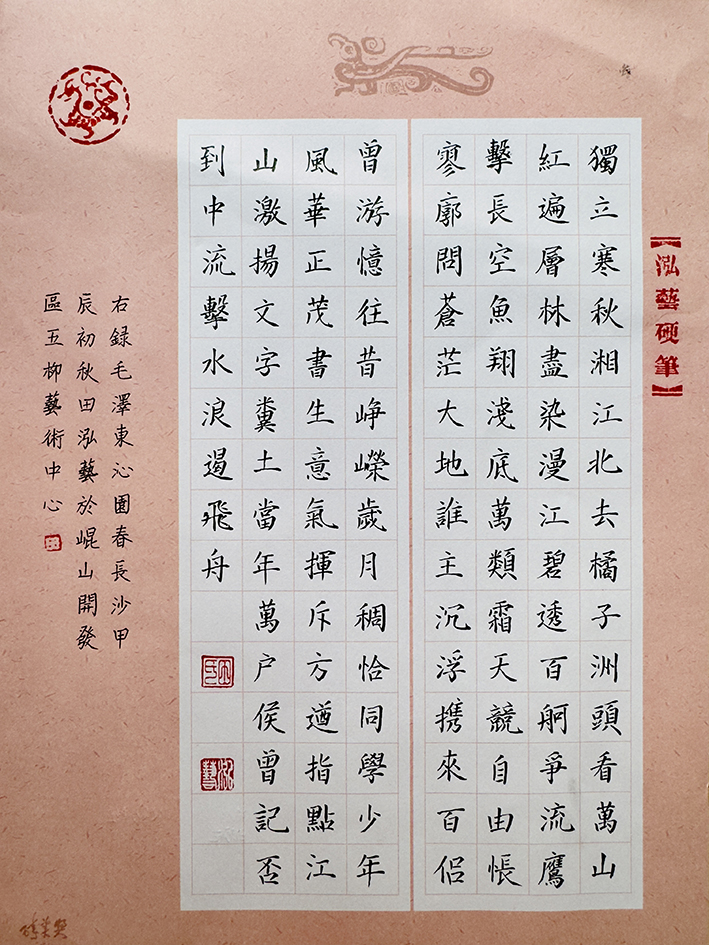 【泓藝硬筆】
獨立寒秋湘江北去橘子洲頭看萬山
紅遍層林盡染漫江碧透百舸爭流鷹
擊長空魚翔淺底萬類霜天競自由悵
寥廓問蒼茫大地誰主沉浮携來百侣
曾游憶往昔崢嶸歲月稠恰同學少年
風華正茂書生意氣揮斥方遒指點江
山激揚文字糞土當年萬户侯曾記否
到中流擊水浪遏飛舟
泓藝
右録毛澤東沁園春長沙甲
辰初秋田泓藝於崐山開發
區五柳藝術中心
田